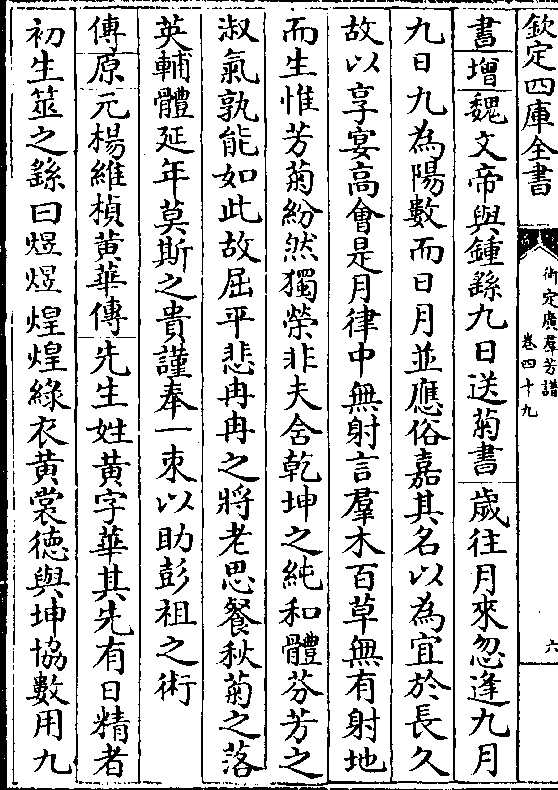 欽定四庫全書
御定廣羣芳譜
卷四十九
六
書增魏文帝與鍾繇九日送菊書歲往月來忽逢九月
九日九為陽數而日月並應俗嘉其名以為宜於長久
故以享宴高會是月律中無射言羣木百草無有射地
而生惟芳菊紛然獨榮非夫含乾坤之純和體芬芳之
淑氣孰能如此故屈平悲冉冉之將老思餐秋菊之落
英輔體延年莫斯之貴謹奉一朿以助彭祖之術
傳原元楊維楨黄華傳先生姓黄字華其先有日精者
初生筮之繇曰煜煜煌煌綠衣黄裳德與坤協數用九